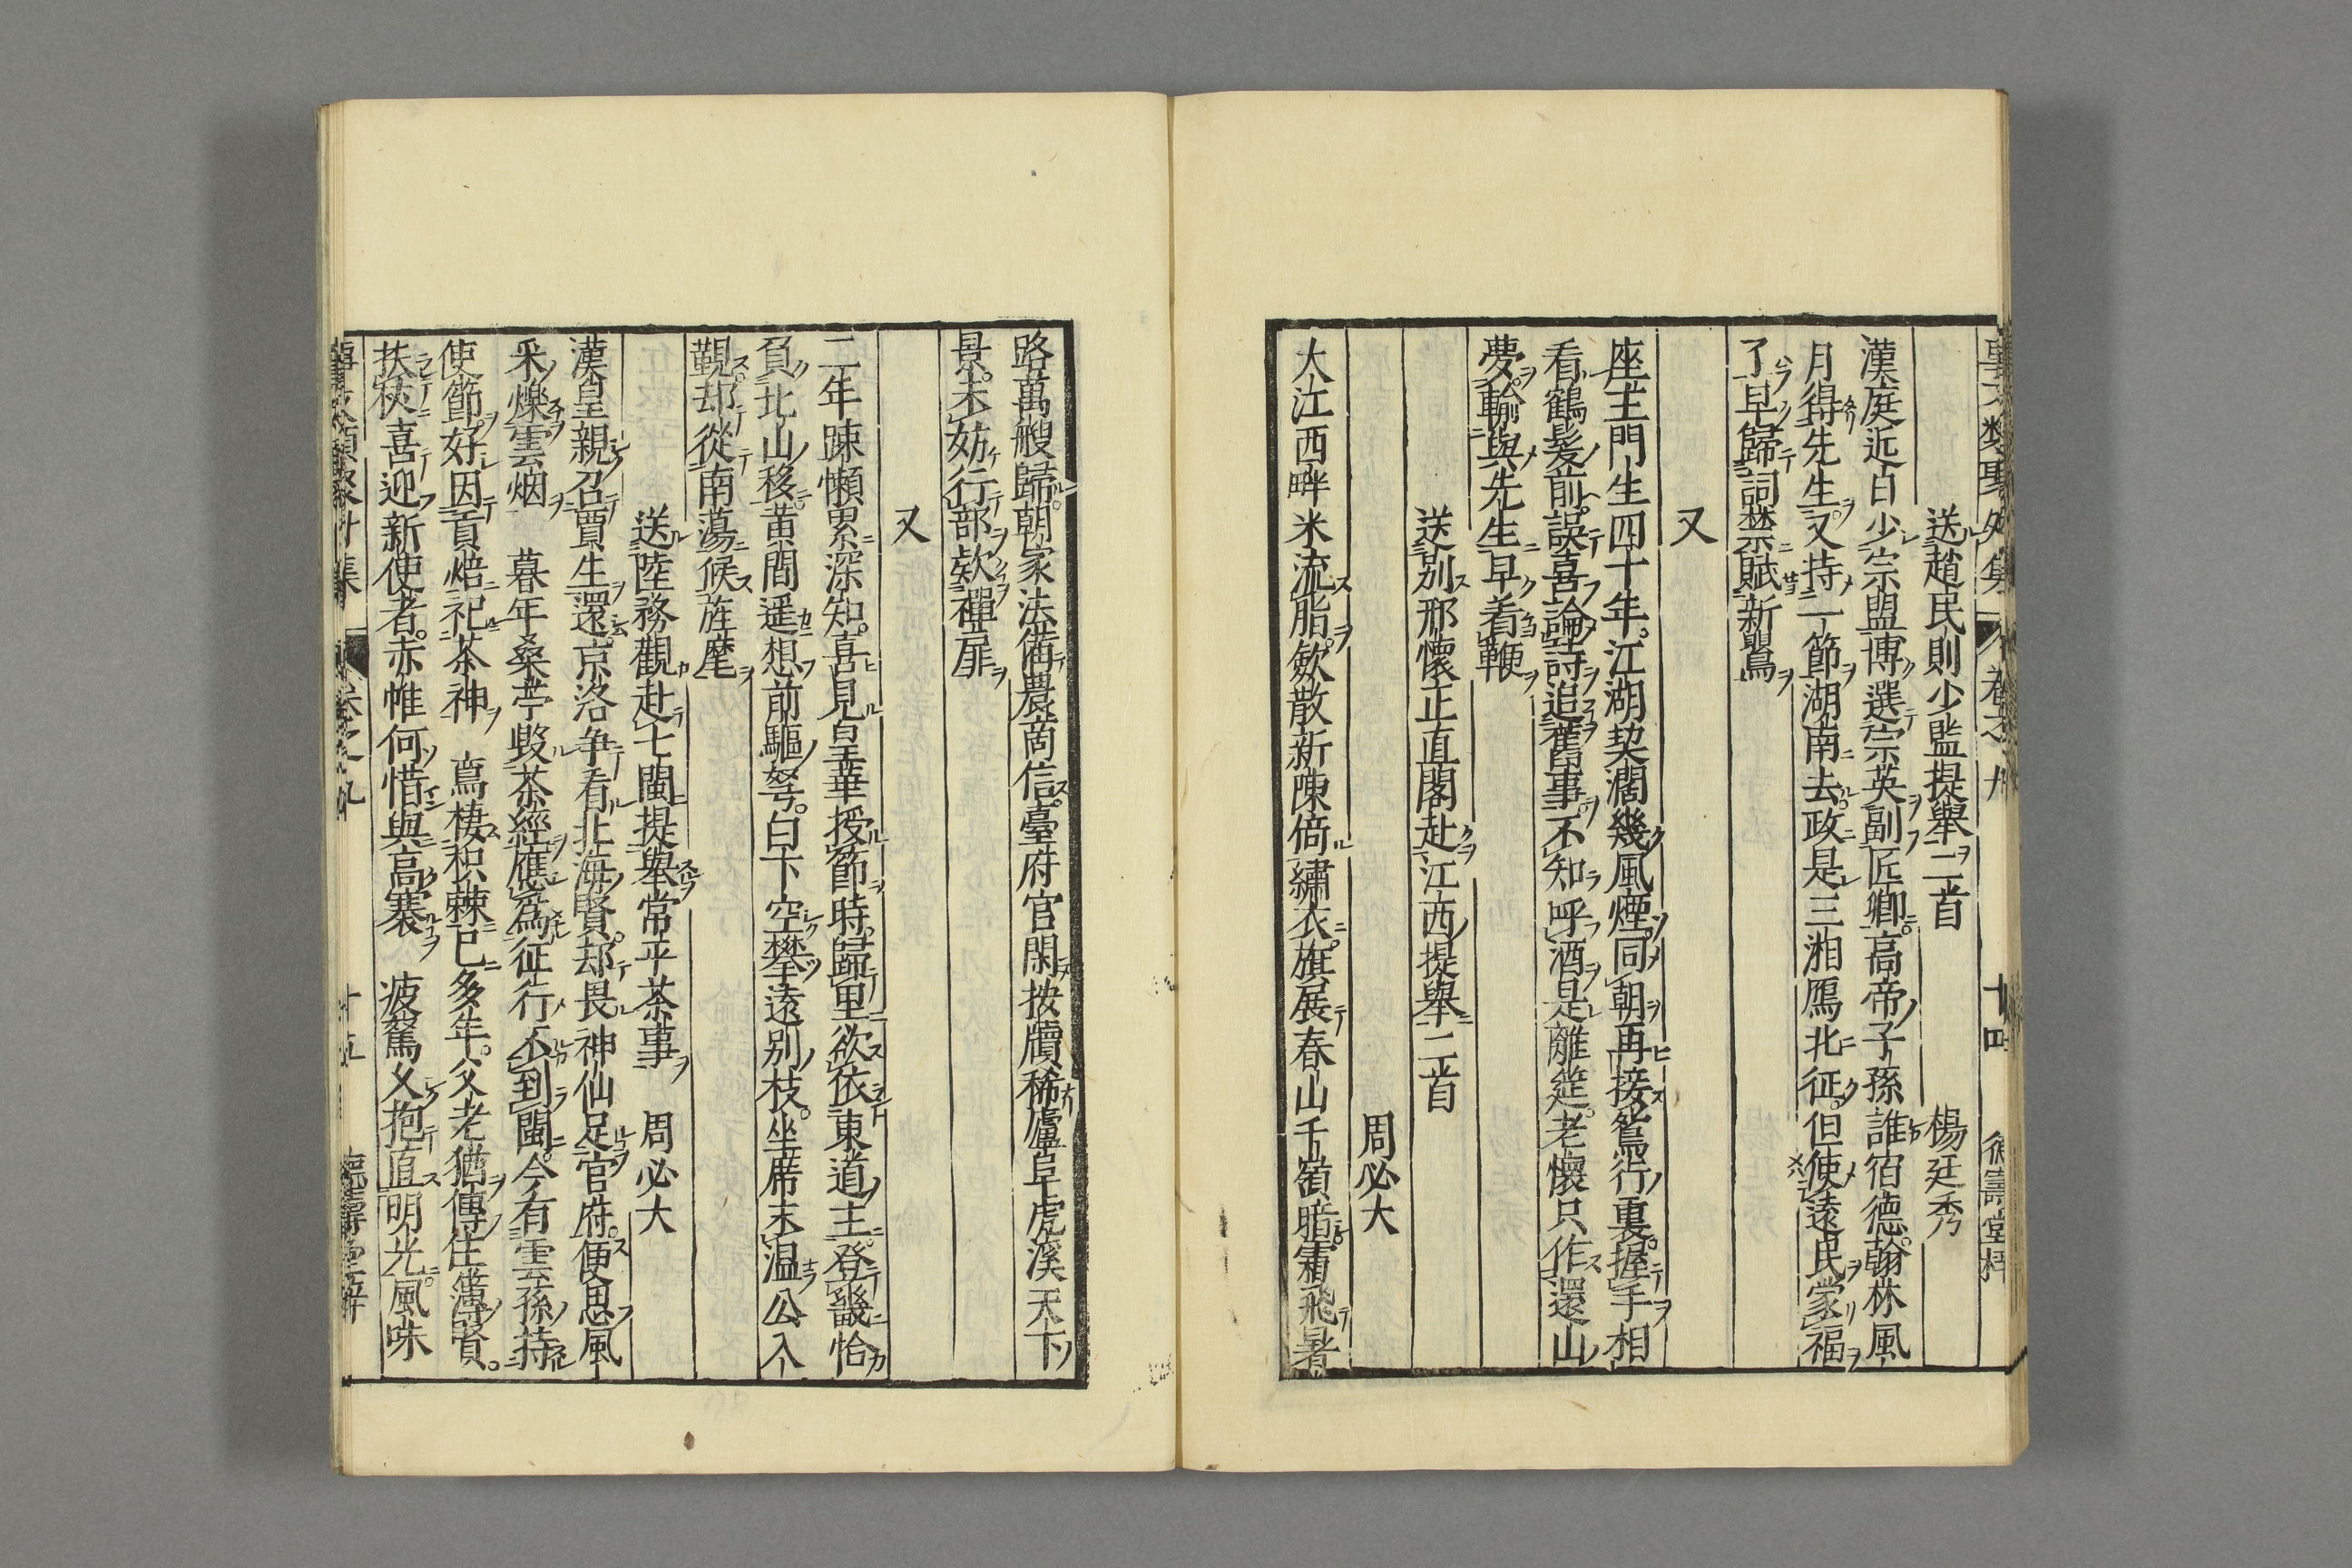 送趙民則少監提舉二首 楊廷秀
漢庭近日少宗盟博選宗英副匠卿高帝子孫誰宿德翰林風
月得先生又持一節湖南去政是三湘鴈北征但使遠民蒙福
了早歸詞禁賦新鸎
又
座主門生四十年江湖契濶幾風煙同朝再接鴛行裏握手相
看鶴髮前誤喜論詩追舊事不知呼酒是離筵老懷只作還山
夢輸與先生早着鞭
送別邢懷正直閣赴江西提舉二首
周必大
大江西畔米流脂斂散新陳倚繡衣旗展春山千嶺暗霜飛暑
路萬艘歸朝家法備農商信臺府官閑按牘稀廬阜虎溪天下
景未妨行部欵禪扉
又
二年踈懶累深知喜見皇華授節時歸里欲依東道主登畿恰
負北山移黄閣遥想前驅弩白下空攀遠別枝坐席未温公入
覲却從南蕩候旌麾
送陸務觀赴七閩提舉常平茶事 周必大
漢皇親召賈生還京洛争看北海賢却畏神仙足官府便思風
采爍雲烟 暮年桑苧毀茶經應為征行不到閩今有雲孫持
使節好因貢焙祀茶神 鳥棲枳棘已多年父老猶傳住簿賢
扶杖喜迎新使者赤帷何惜與高褰 疲駑乂抱直明光風味